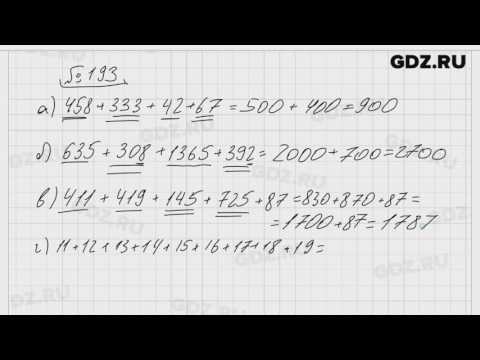 GDZ.RU
№193
а) 458 + 333 + 42 + 67 = 500 + 400 = 900
б) 635 + 308 + 1365 + 392 = 2000 + 700 = 2700
в) 411 + 419 + 145 + 725 + 87 = 830 + 870 + 87 =
= 1700 + 87 = 1787
г) 11 + 12 + 13 + 14 + 15 + 16 + 17 + 18 + 19 =